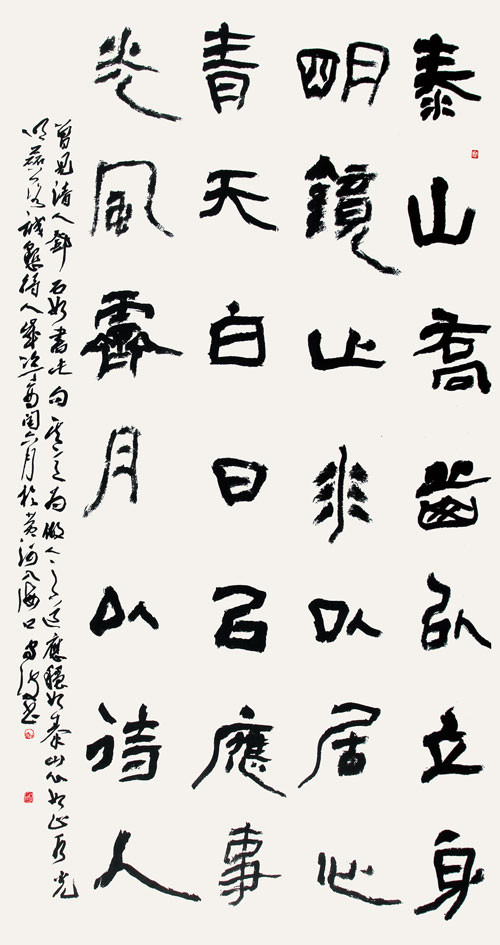 泰山喬嶽以立身
明鏡止水以居心
青天白日以應事
光風霽月以待人
曾見清人鄧石如書此句意之為做人之道應穩如泰山心如止水光
明磊落誠懇待人歲次丁酉閏六月於黃河入海口